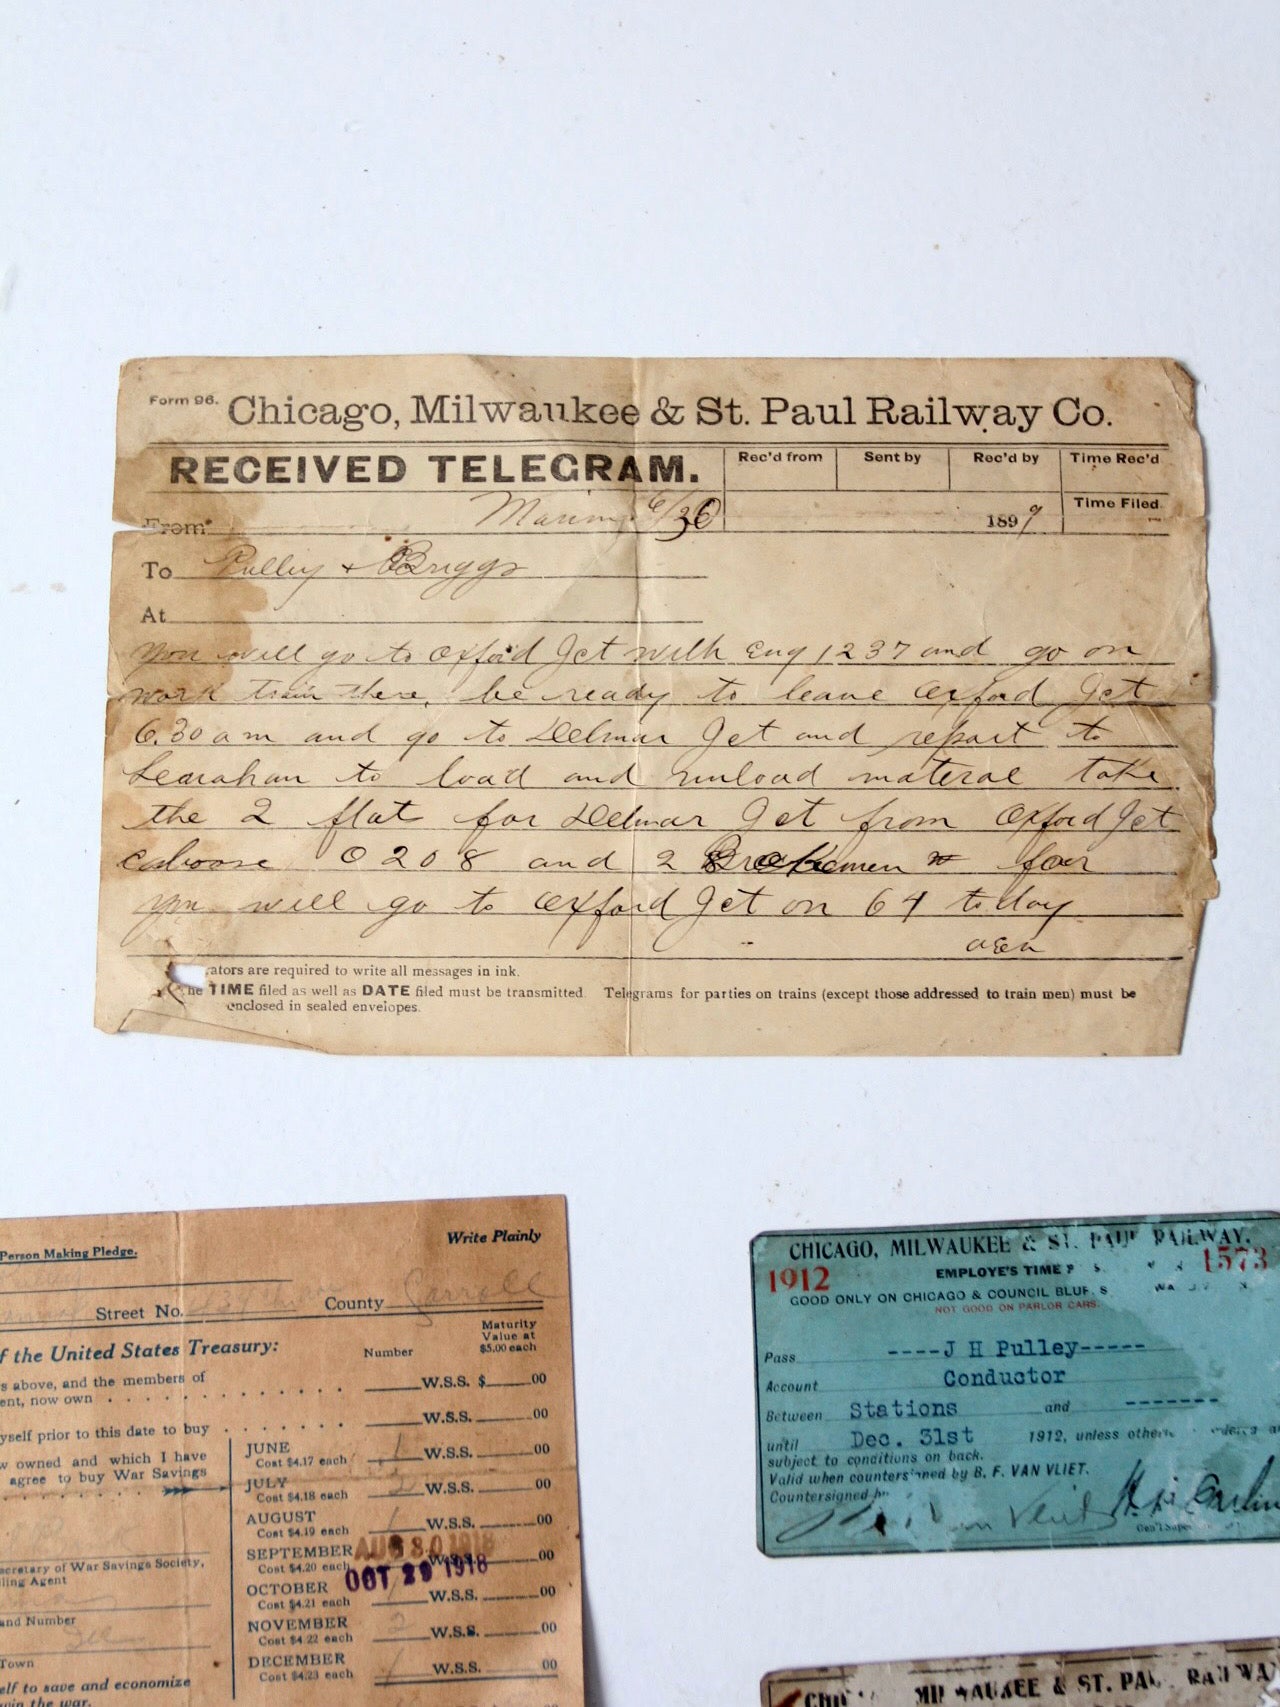 Form 96. Chicago, Milwaukee & St. Paul Railway Co.
RECEIVED TELEGRAM.
Rec'd from Sent by Rec'd by Time Rec'd
From Marion 6/30 1899 Time Filed
To Pulley & Briggs
At
You will go to Oxford Jct with Eng 1237 and go on
work train there, be ready to leave Oxford Jct
6.30 am and go to Delmar Jct and report to
to load and unload materal take
the 2 flat for Delmar Jct from Oxford Jct
caboose 0208 and 2 Brakemen for
you will go to Oxford Jct on 64 today
ators are required to write all messages in ink.
he TIME filed as well as DATE filed must be transmitted Telegrams for parties on trains (except those addressed to train men) must be
enclosed in sealed envelopes.
Write Plainly
Person Making Pledge.
Street No. County Carroll
f the United States Treasury:
Number
Maturity
Value at
$5.00 each
s above, and the members of
ent, now own W.S.S. $ .00
yself prior to this date to buy W.S.S. .00
w owned and which I have
agree to buy War Savings
JUNE
Cost $4.17 each 1 W.S.S. .00
JULY
Cost $4.18 each 2 W.S.S. .00
AUGUST
Cost $4.19 each 1 W.S.S. .00
SEPTEMBER
Cost $4.20 each W.S.S. .00
AUG 30 1918
OCT 29 1918
OCTOBER
Cost $4.21 each 1 W.S.S. .00
NOVEMBER
Cost $4.22 each 2 W.S.S. .00
DECEMBER
Cost $4.23 each 1 W.S.S. .00
ecretary of War Savings Society,
ling Agent
and Number
Town
elf to save and economize
win the war.
CHICAGO, MILWAUKEE & ST. PAUL RAILWAY.
1912 EMPLOYE'S TIME P 1573
GOOD ONLY ON CHICAGO & COUNCIL BLUF S
NOT GOOD ON PARLOR CARS.
Pass ----J H Pulley-----
Account Conductor
Between Stations and -------
until Dec. 31st 1912, unless otherwise ordered a
subject to conditions on back.
Valid when countersigned by B. F. VAN VLIET.
Countersigned by
Gen'l Supe
CHIC MILWAUKEE & ST. PAUL RAILWA